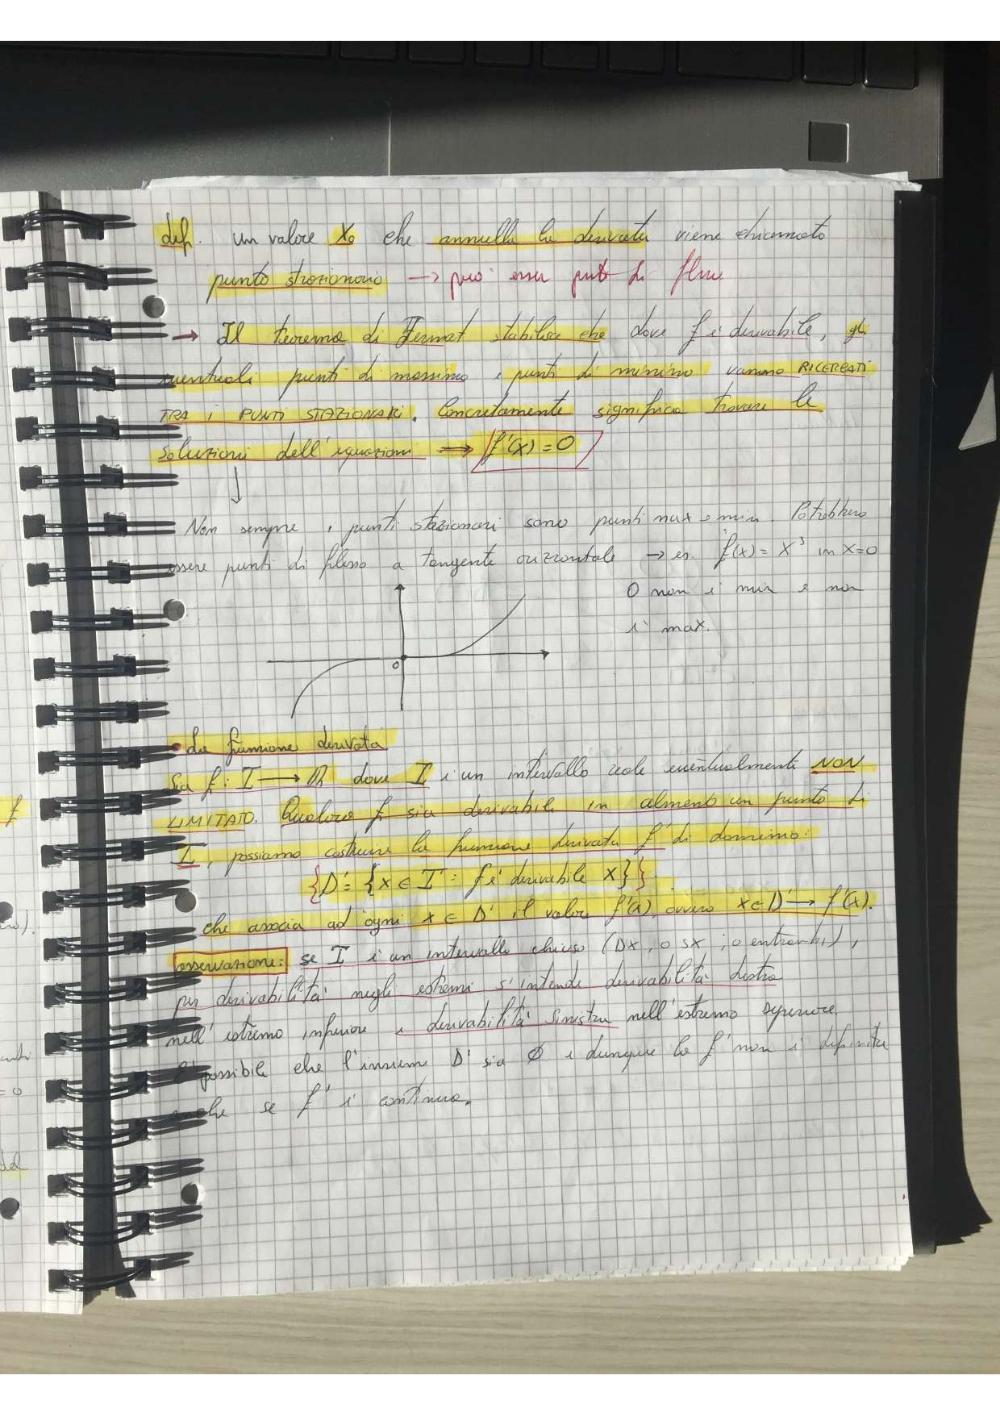 def. un valore x₀ che annulla la derivata viene chiamato
punto stazionario → può esser punto di flesso
→ Il teorema di Fermat stabilisce che dove f è derivabile, gli
eventuali punti di massimo e punti di minimo vanno RICERCATI
TRA i PUNTI STAZIONARI. Concretamente significa trovare le
soluzioni dell'equazioni → f'(x)=0
Non sempre i punti stazionari sono punti max e min. Potrebbero
essere punti di flesso a tangente orizzontale → es. f(x)= x³ in x=0
0 non è min e non
è max.
0
• La funzione derivata
Sia f: I → R dove I è un intervallo reale eventualmente NON
LIMITATO. Qualora f sia derivabile in almeno un punto di
I, possiamo costruire la funzione derivata f' di dominio:
{D'= {x ∈ I : f è derivabile x}}
che associa ad ogni x ∈ D' il valore f'(x), ovvero x ∈ D' → f'(x).
osservazione: se I è un intervallo chiuso (Dx, o sx, o entrambi),
per derivabilità negli estremi s'intende derivabilità destra
nell'estremo inferiore e derivabilità sinistra nell'estremo superiore.
E' possibile che l'insieme D' sia ∅ e dunque la f' non è definita
anche se f è continua.